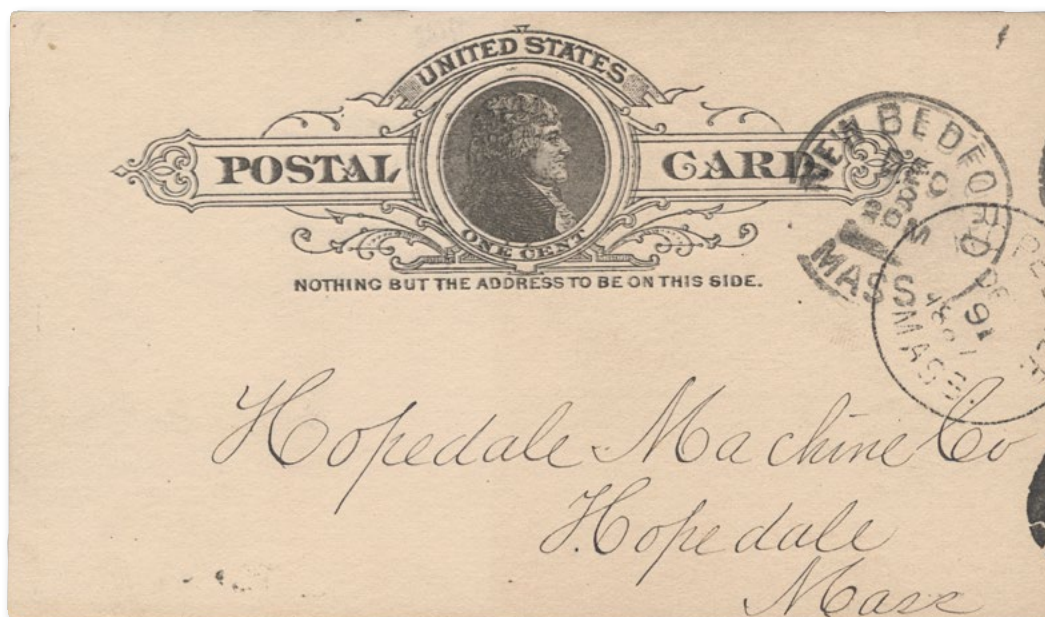 UNITED STATES
POSTAL CARD.
ONE CENT
NOTHING BUT THE ADDRESS TO BE ON THIS SIDE.
NEW BEDFORD
MASS
MASS.
Hopedale Machine Co
Hopedale
Mass